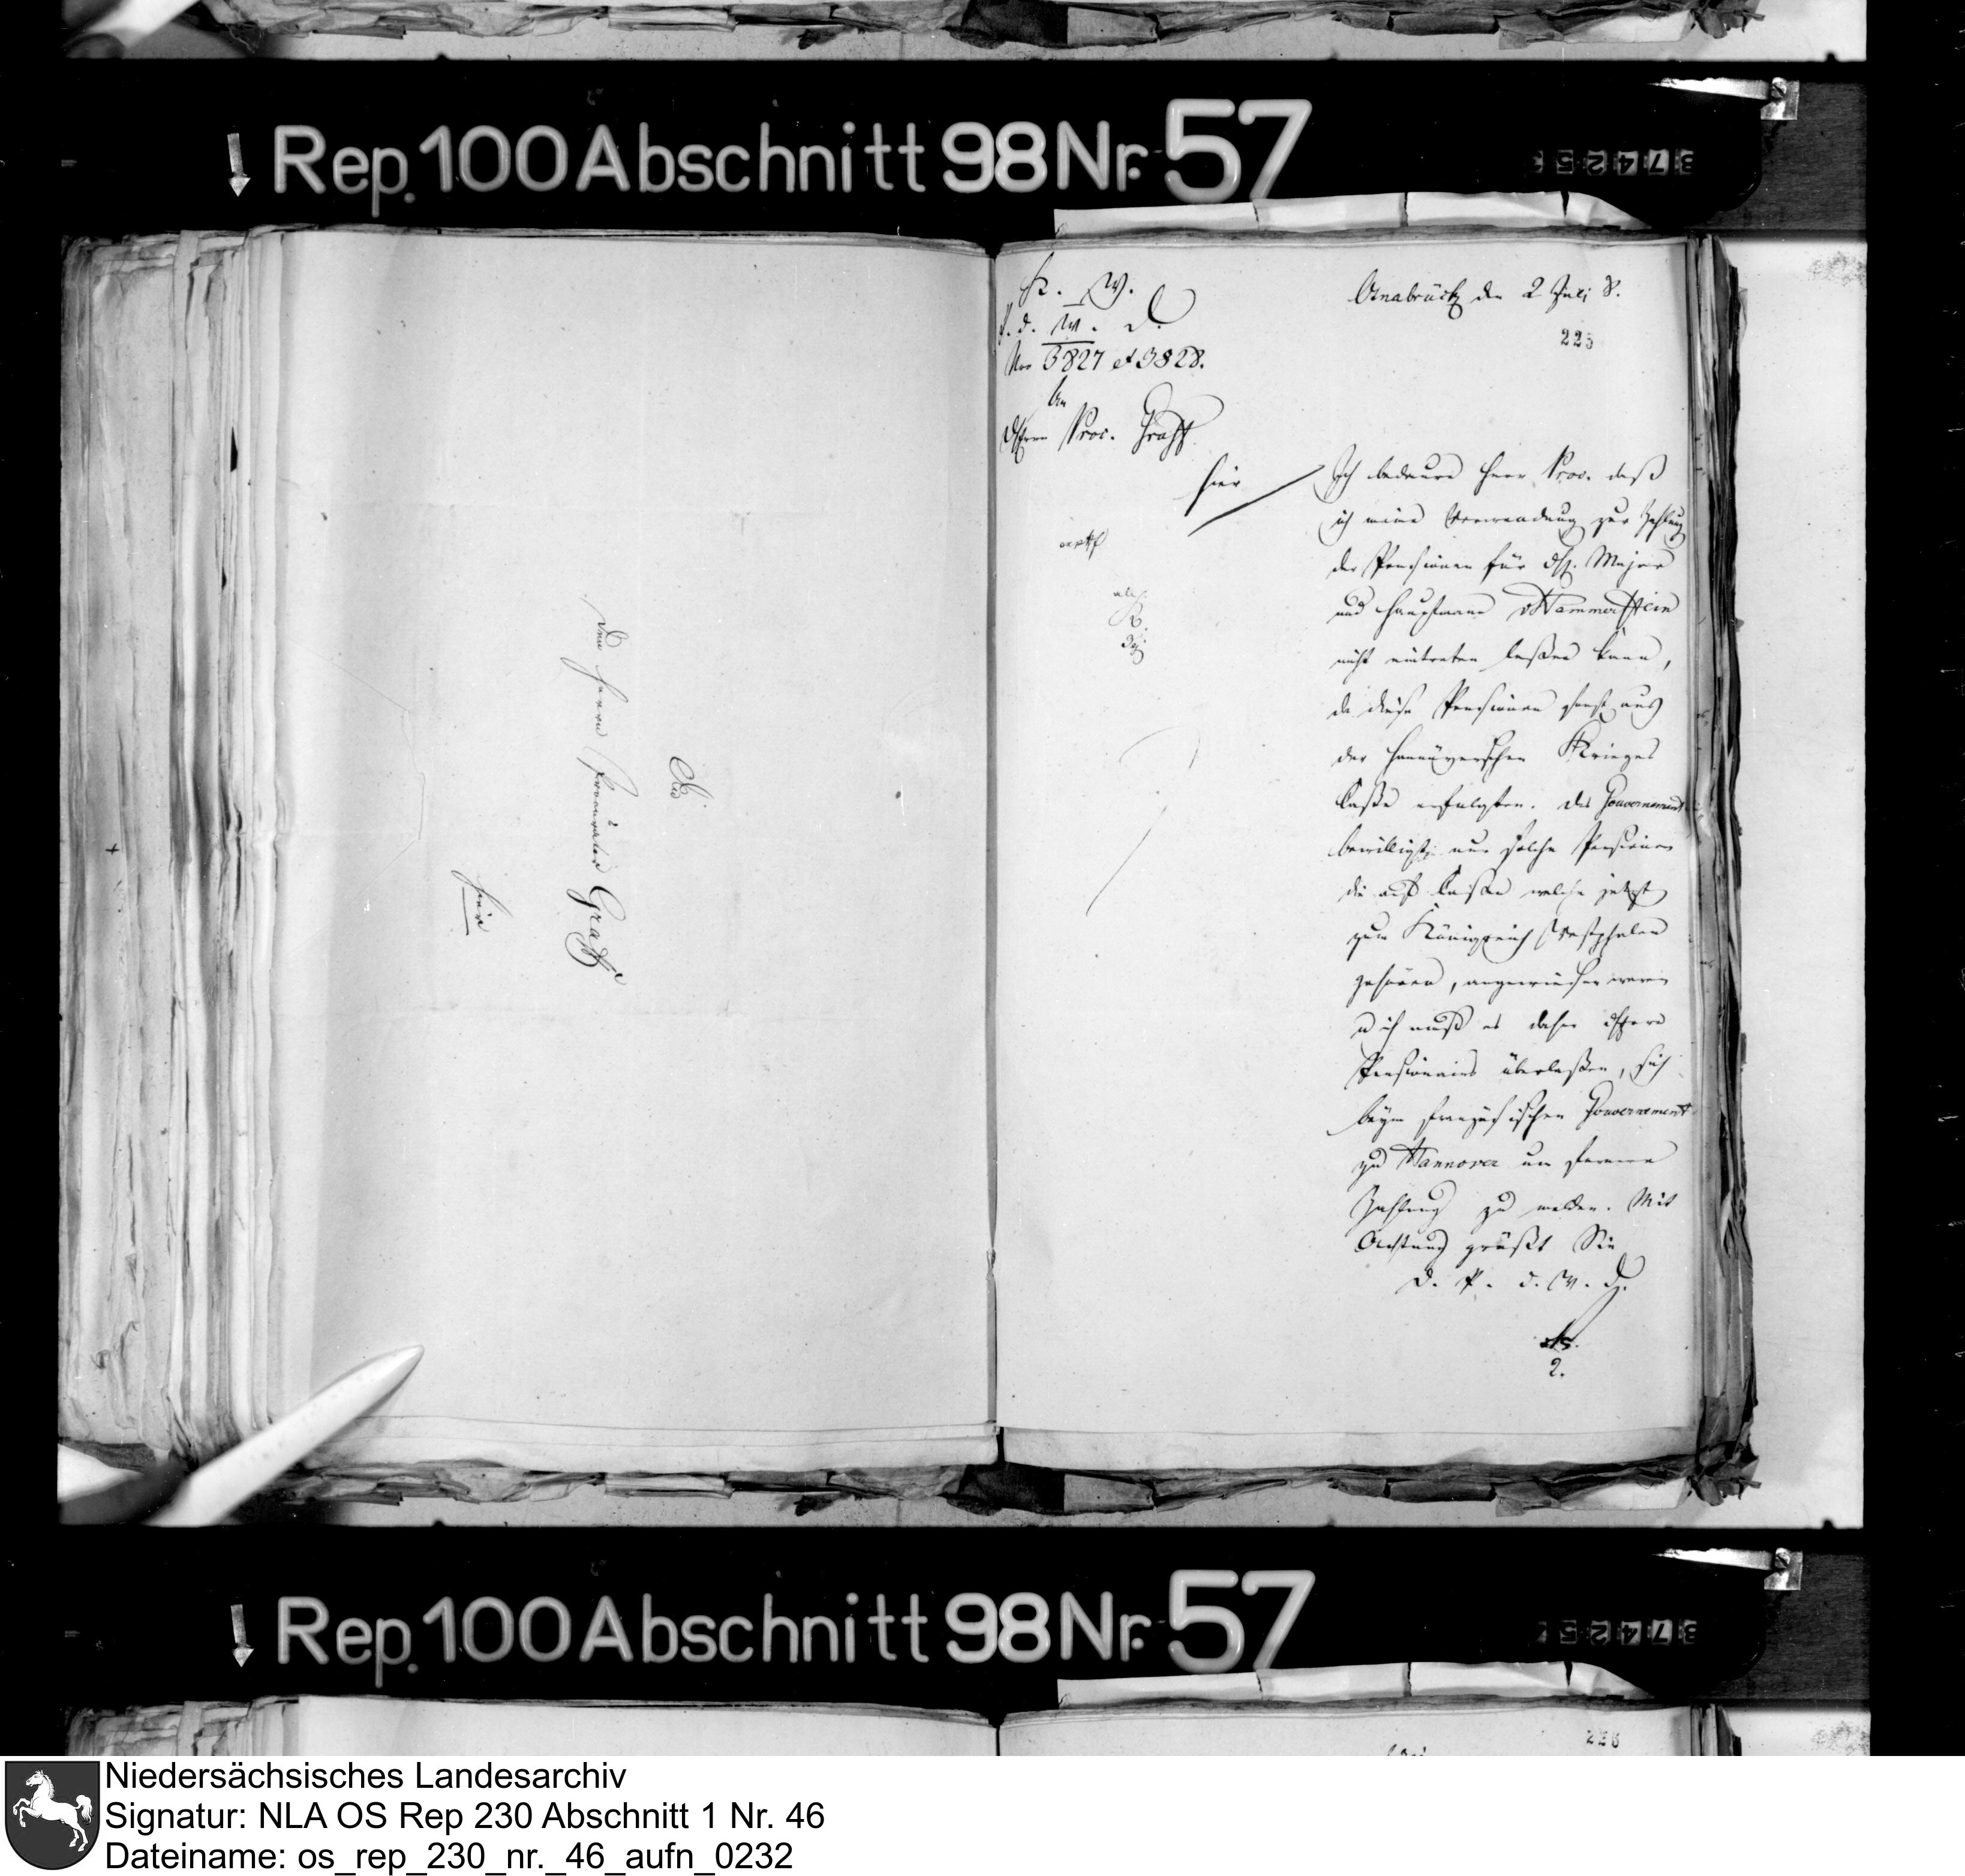 Rep. 100 Abschnitt 98 Nr. 57
An
den Herrn Procurator Graff
hier
K. W.
P. d. W. D.
Nro 3827 et 3828.
An
Herrn Proc. Graff
hier
Osnabrück den 2 Juli 8.
225
Ich bedaure Herr Proc. daß
ich meine Verwendung zur Zahlung
der Pensionen für HH. Major
und Hauptmann v Hammerstein
nicht eintreten laßen kann,
da diese Pensionen sonst aus
der Hannöverschen Krieges
Caße erfolgten. Das Gouvernement
bewilligt nur solche Pensionen
die auf Caßen welche jetzt
zum Königreich Westphalen
gehören, angewiesen waren
u ich muß es daher Herrn
Pensionairs überlaßen, sich
beym französischen Gouvernement
zu Hannover um fernere
Zahlung zu melden. Mit
Achtung grüßt Sie
D. P. d. W. D.
2.
Rep. 100 Abschnitt 98 Nr. 57
226
Niedersächsisches Landesarchiv
Signatur: NLA OS Rep 230 Abschnitt 1 Nr. 46
Dateiname: os_rep_230_nr._46_aufn_0232